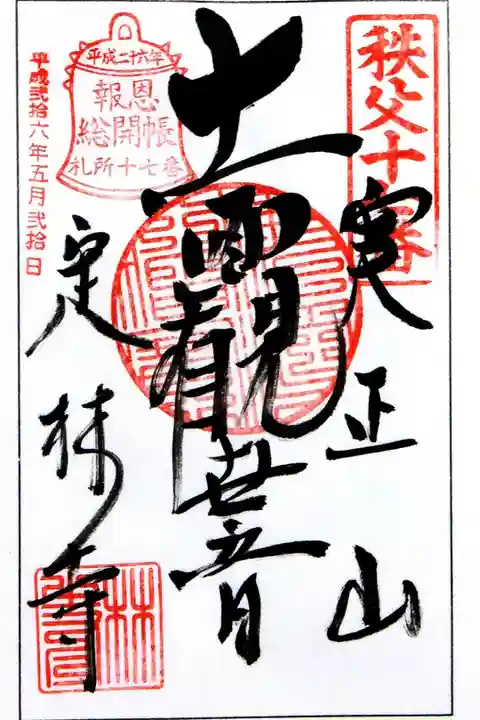 秩父十七番
実正山
十一面觀世音
平成二十六年
報恩
総開帳
札所十七番
平成弐拾六年五月弐拾日
定林寺